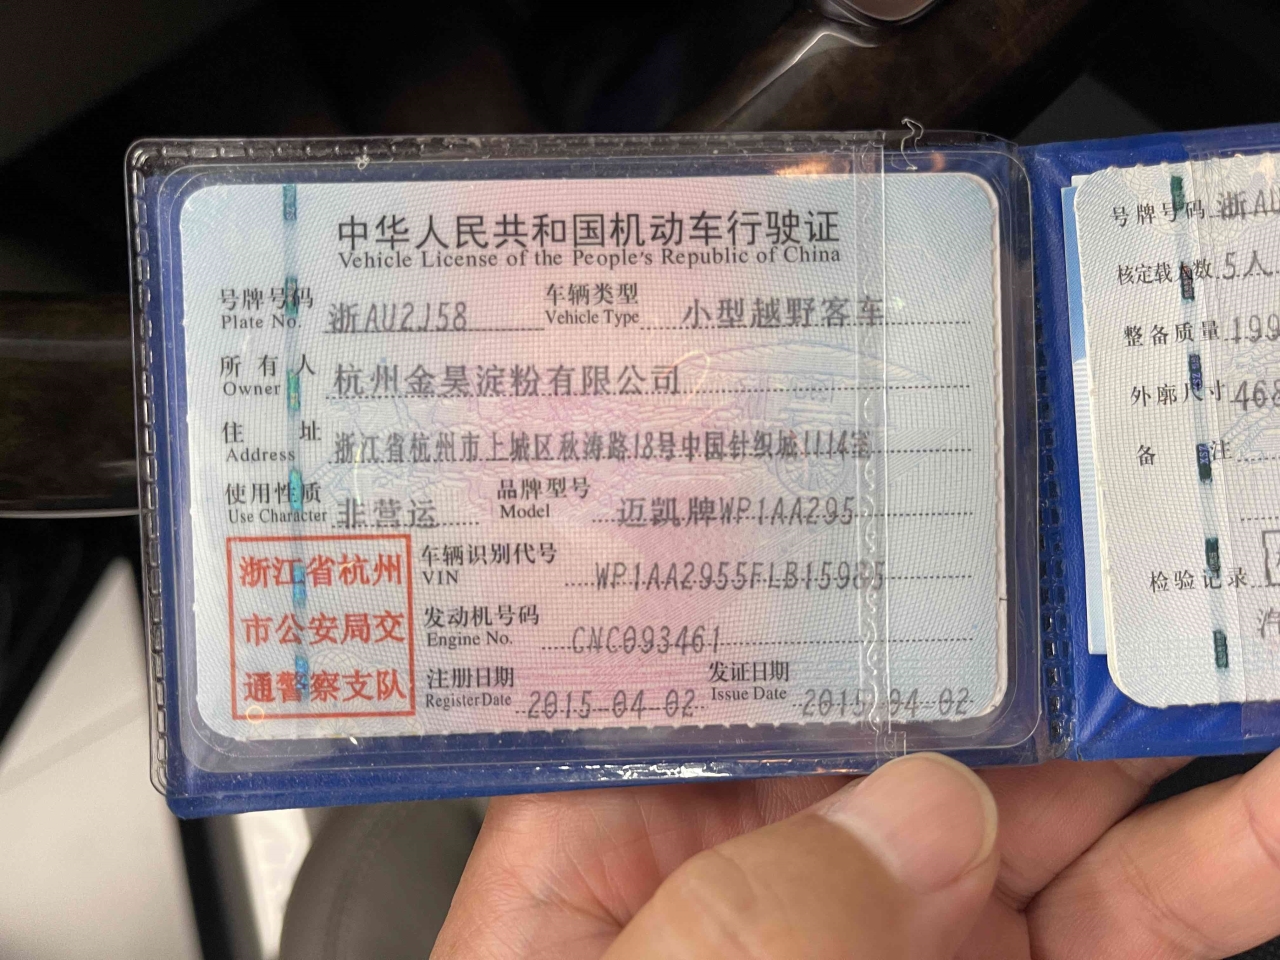 中华人民共和国机动车行驶证
Vehicle License of the People's Republic of China
号牌号码 浙AU2J58 车辆类型 小型越野客车
Plate No. Vehicle Type
所有人 杭州金昊淀粉有限公司
Owner
住址 浙江省杭州市上城区秋涛路18号中国针织城1114室
Address
使用性质 非营运 品牌型号 迈凯牌WP1AA295
Use Character Model
浙江省杭州
市公安局交
通警察支队
车辆识别代号 WP1AA2955FLB15985
VIN
发动机号码 CNC093461
Engine No.
注册日期 2015-04-02 发证日期 2015-04-02
Register Date Issue Date
号牌号码 浙AU
核定载人数 5人
整备质量 199
外廓尺寸 468
备注
检验记录